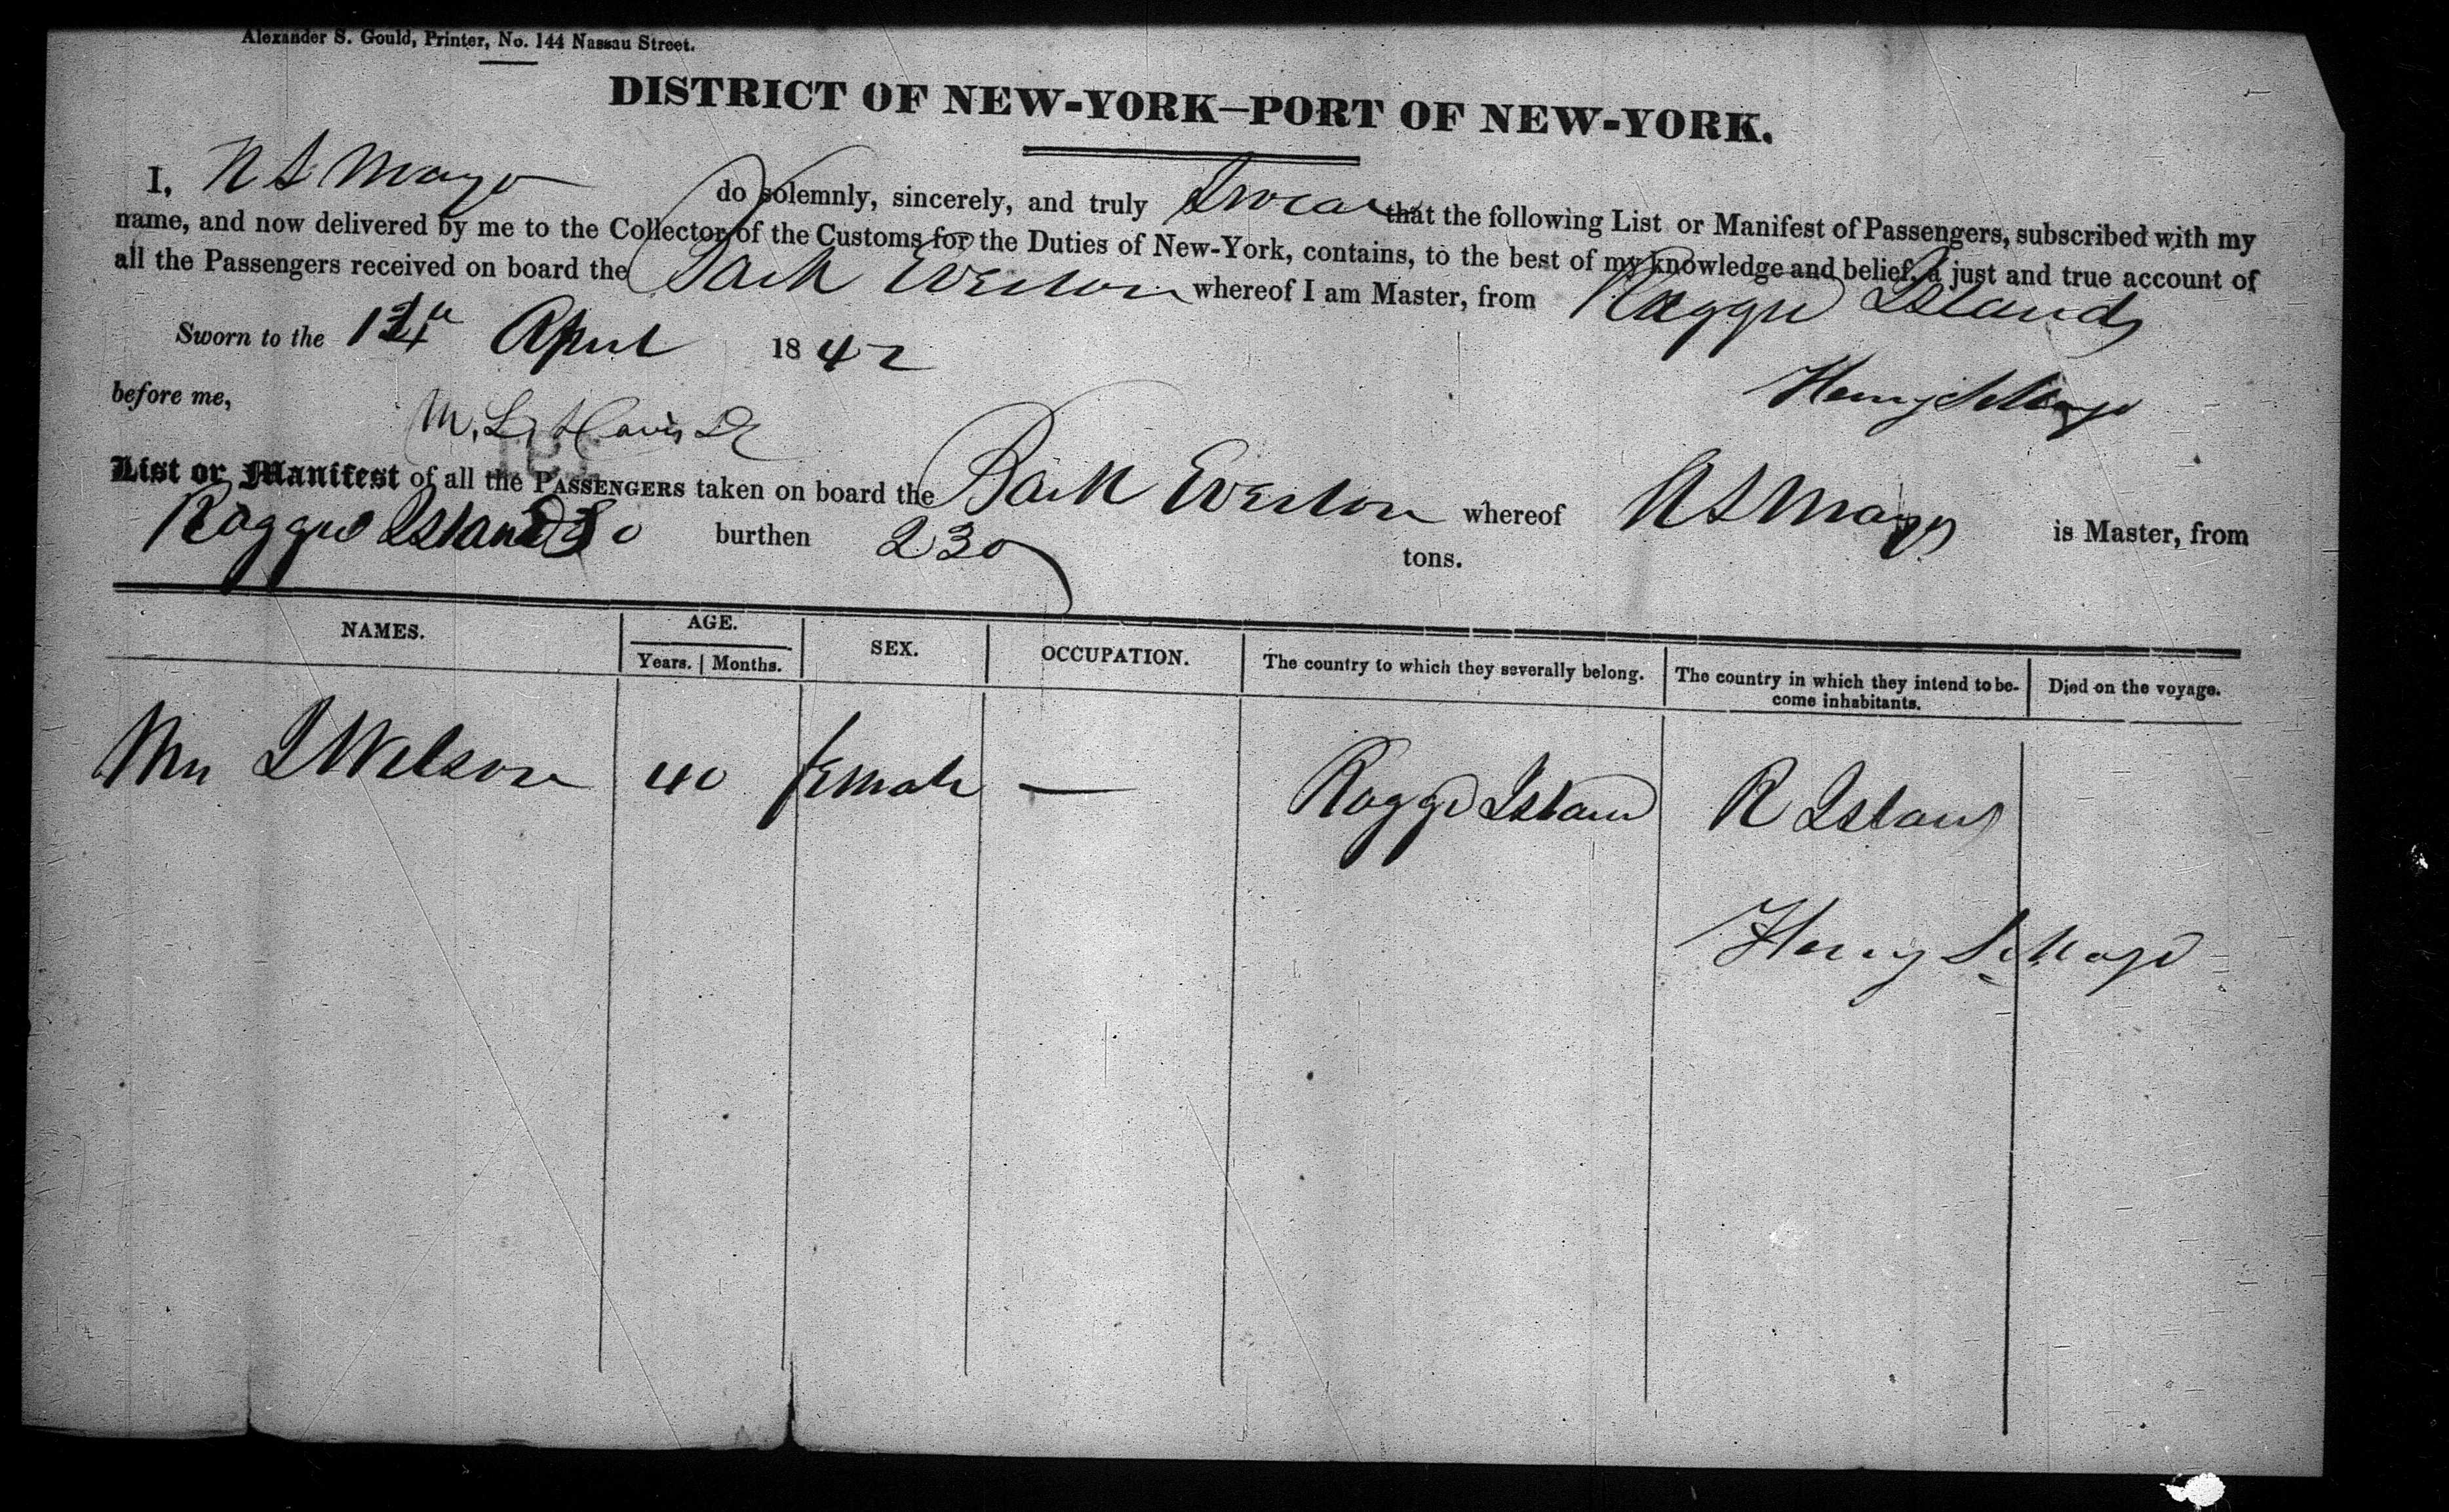 Alexander S. Gould, Printer, No. 144 Nassau Street.
DISTRICT OF NEW-YORK—PORT OF NEW-YORK.
I, H S Mayo do solemnly, sincerely, and truly Swear that the following List or Manifest of Passengers, subscribed with my
name, and now delivered by me to the Collector of the Customs for the Duties of New-York, contains, to the best of my knowledge and belief, a just and true account of
all the Passengers received on board the Bark Weston whereof I am Master, from Raggd Islands
Sworn to the April 1842
Henry S Mayo
before me,
M. L. Davis
List or Manifest of all the PASSENGERS taken on board the Bark Weston whereof H S Mayo is Master, from
Raggd Island burthen 230 tons.
NAMES. AGE. SEX. OCCUPATION. The country to which they severally belong. The country in which they intend to be- Died on the voyage.
Years. Months. come inhabitants.
Mrs Wilson 40 female — Raggd Island R Island
Henry S Mayo